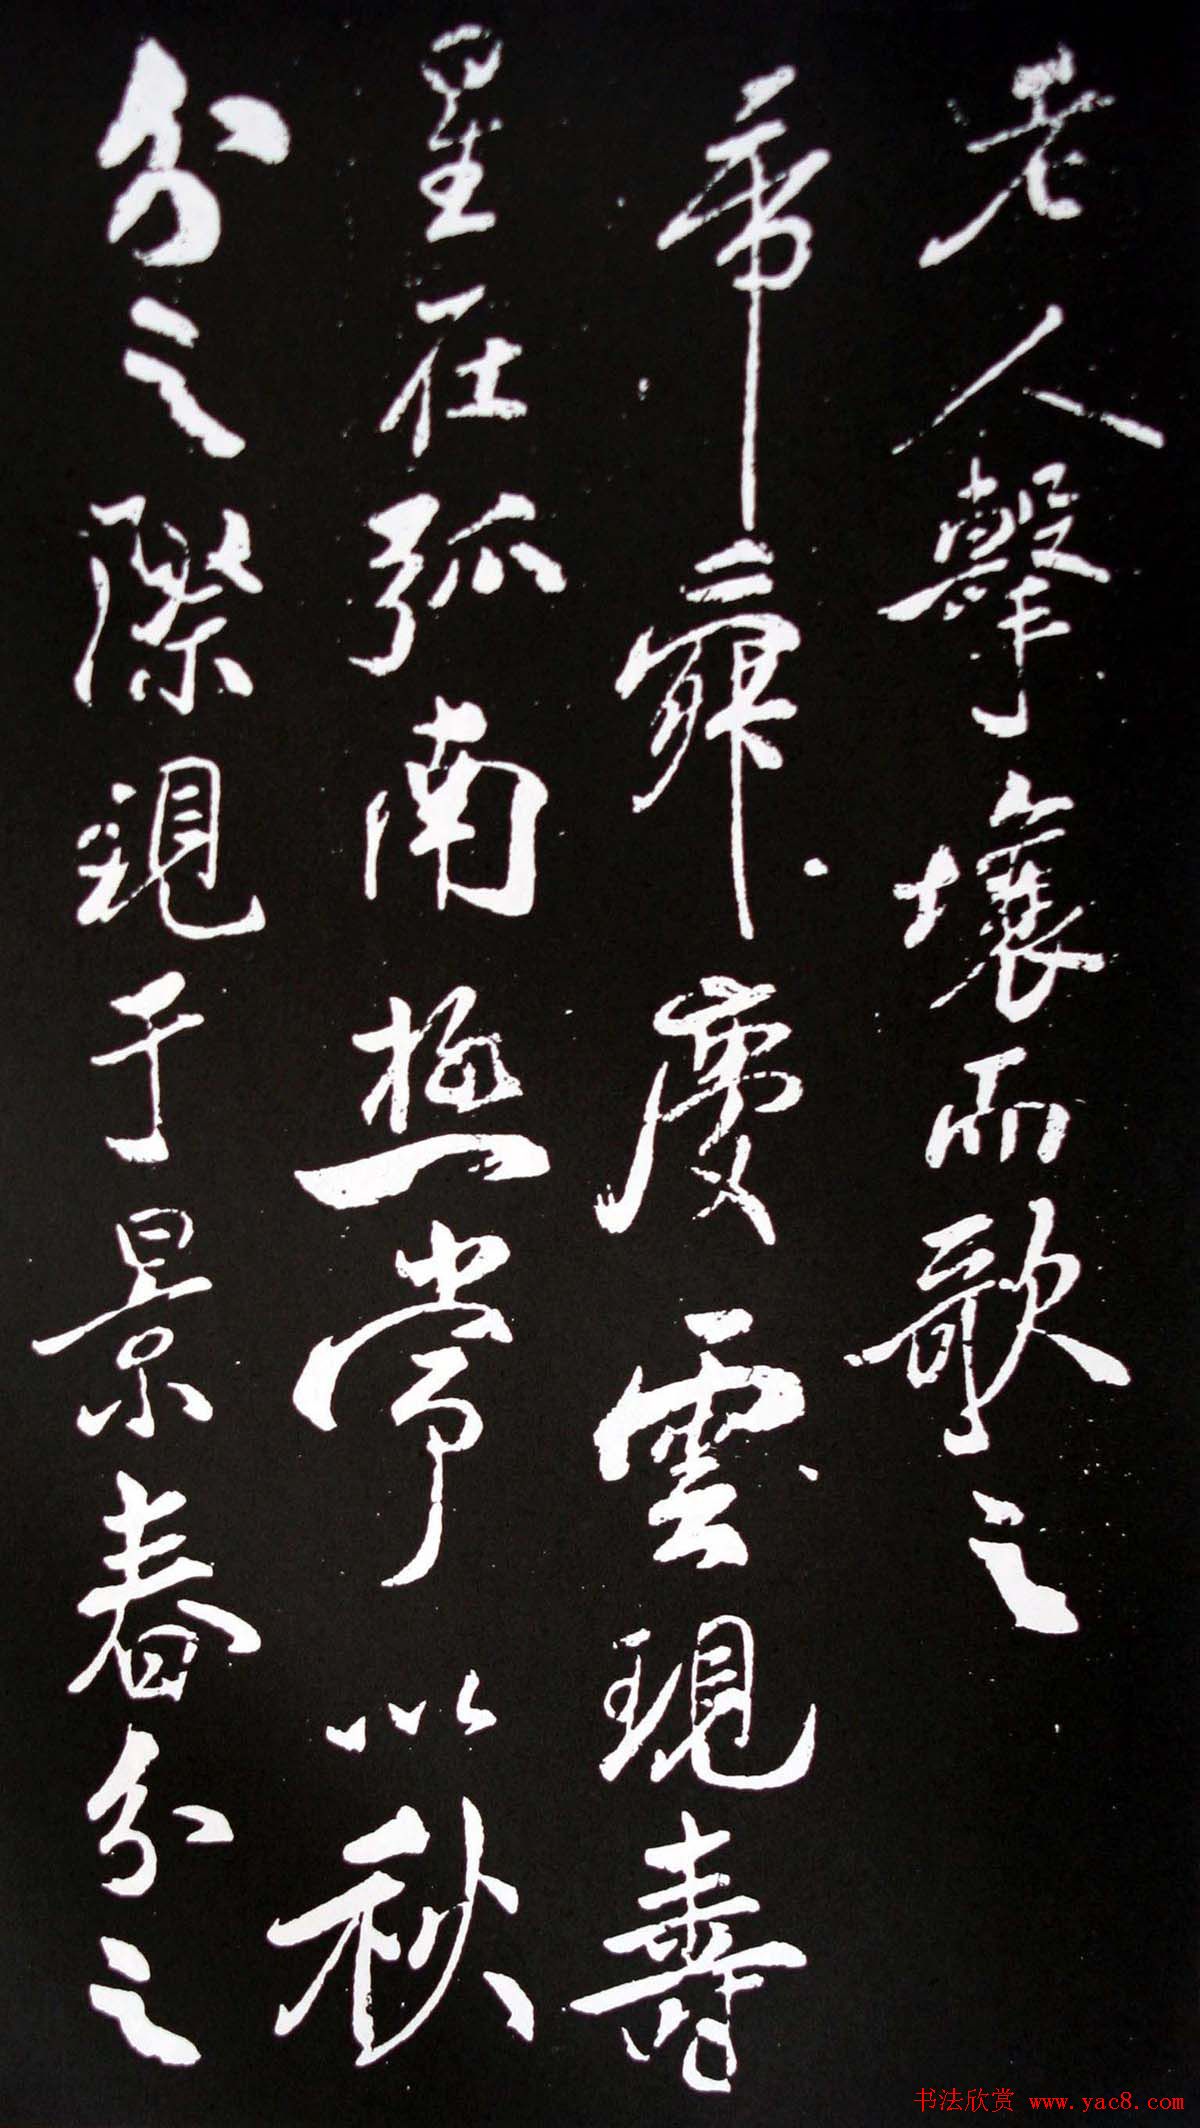 老人擊壤而歌之
帝舜慶雲現壽
星在弧南極常以秋
分之際現于景春分之
书法欣赏 www.yac8.com